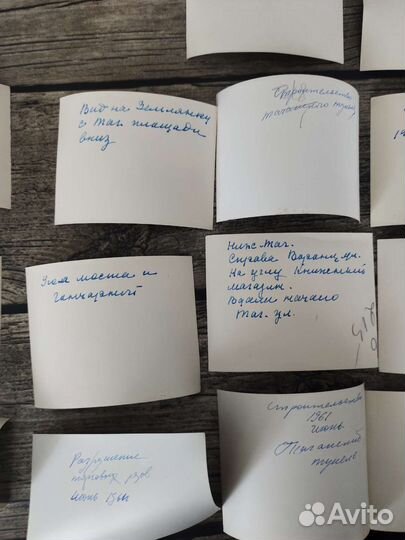 Вид на Землянку
с Таг. площади
вниз
Строительство
таганского тунеля
Угол моста и
Гончарной
Ниж. Таг.
Справа Воронц. ул.
На углу Книжный
магазин.
Вдали начало
Таг. ул.
Строительство
1961
июнь
Таганский
тунель
Разрушение
торговых рядов
июнь 1961
Avito